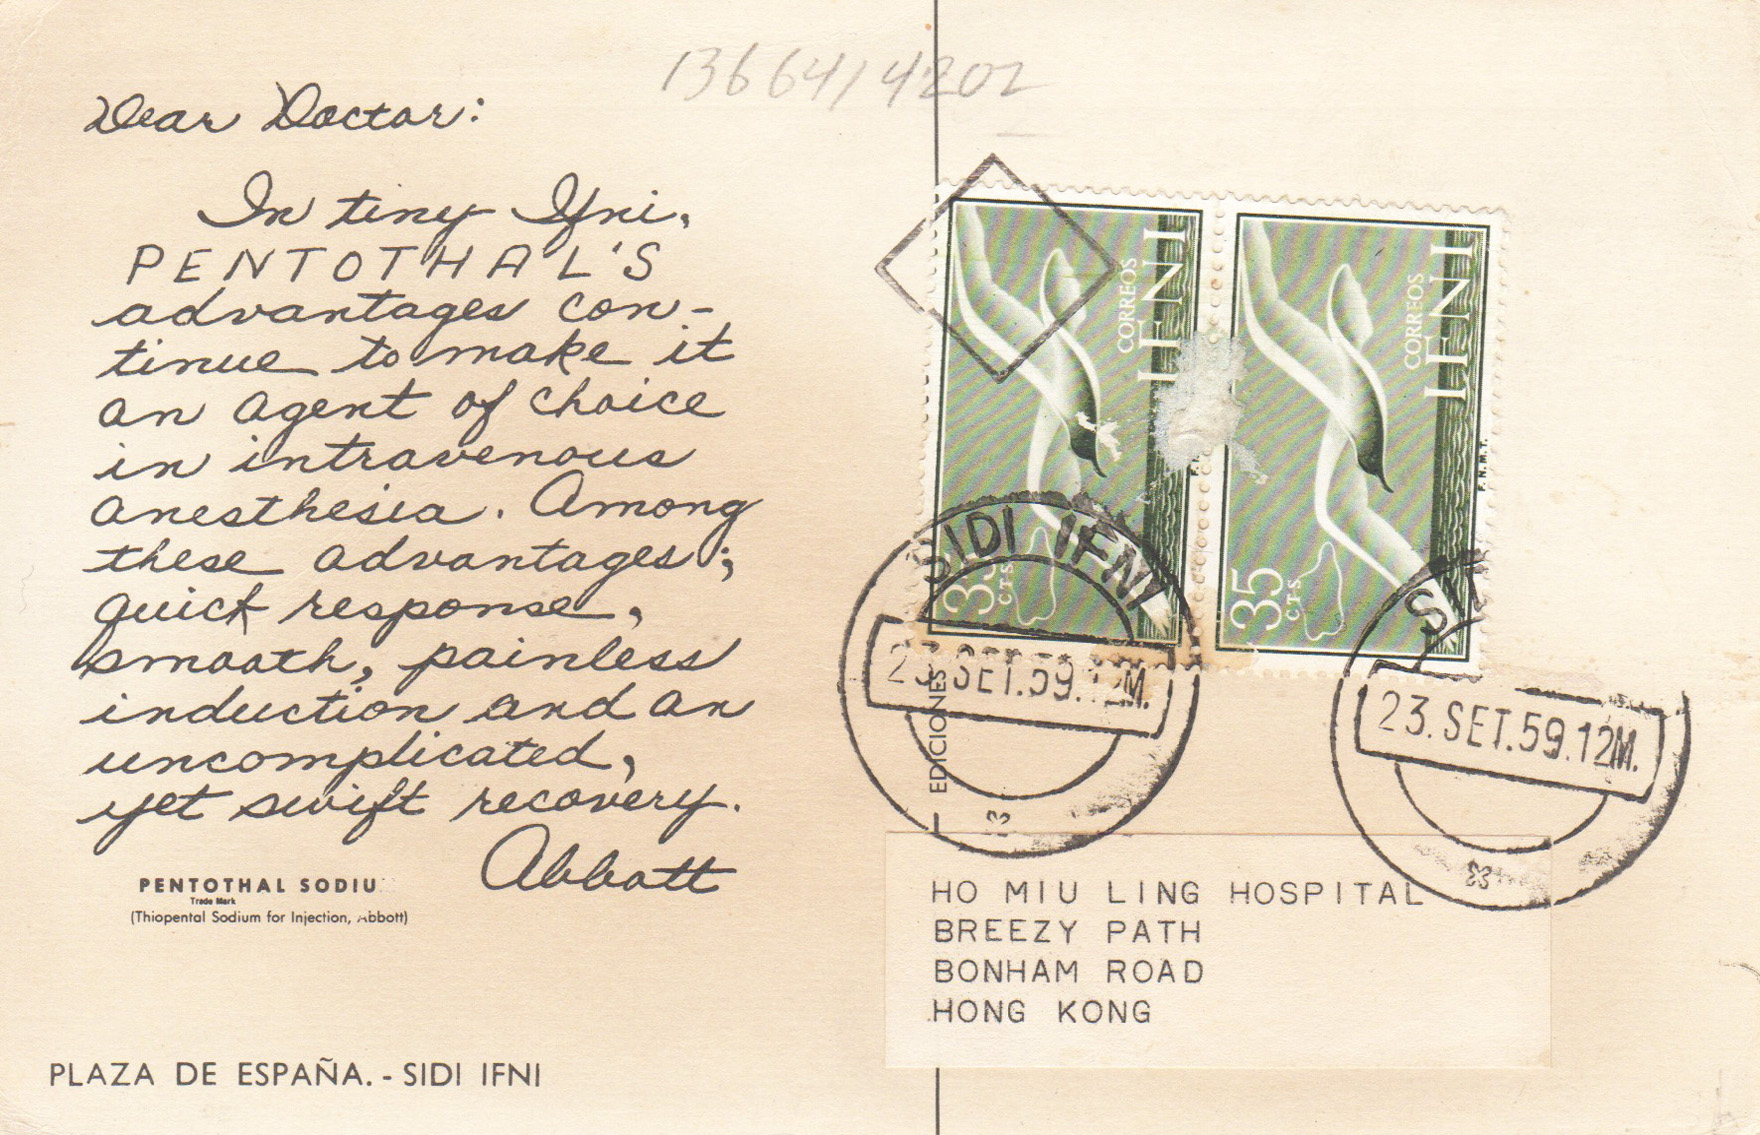 13664/4202
Dear Doctor:
In tiny Ifni,
PENTOTHAL'S
advantages con-
tinue to make it
an agent of choice
in intravenous
anesthesia. Among
these advantages;
quick response,
smooth, painless
induction and an
uncomplicated,
yet swift recovery.
Abbott
PENTOTHAL SODIU
Trade Mark
(Thiopental Sodium for Injection, Abbott)
PLAZA DE ESPAÑA. - SIDI IFNI
CORREOS
IFNI
35
CTS
CORREOS
IFNI
35
CTS
F.N.M.T.
SIDI IFNI
23.SET.59.12M.
23.SET.59.12M.
EDICIONES
HO MIU LING HOSPITAL
BREEZY PATH
BONHAM ROAD
HONG KONG